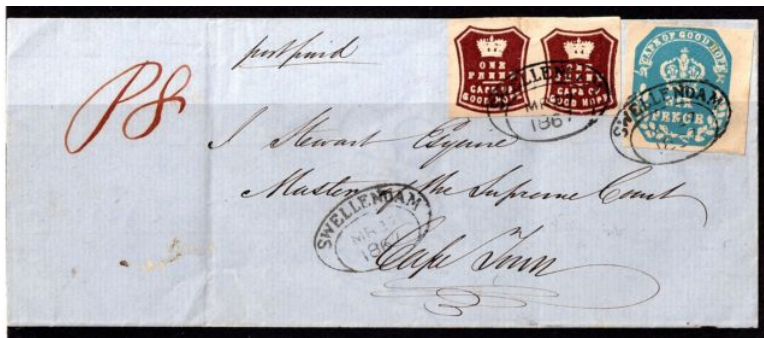 post paid
ONE
PENNY
CAPE OF
GOOD HOPE
ONE
CAPE OF
GOOD HOPE
CAPE OF GOOD HOPE
SIX
PENCE
SWELLENDAM
1867
SWELLENDAM
P8
J Stewart Esquire
Master of the Supreme Court
Cape Town
SWELLENDAM
MR 17
1867